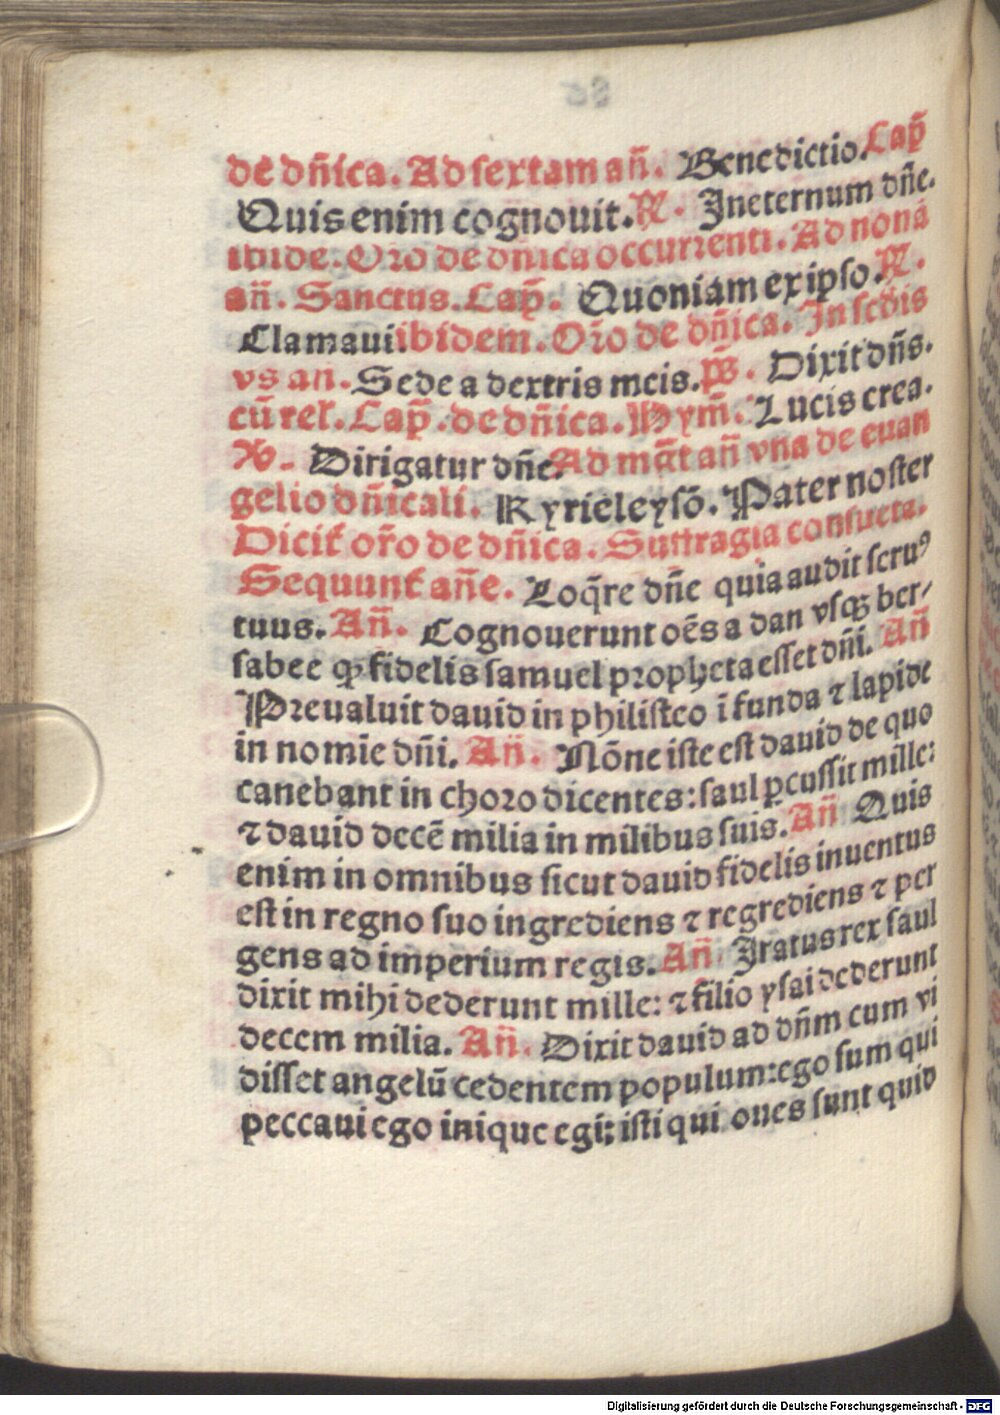 de dn̄ica. Ad sextam an̄. Benedictio. Cap̄
Quis enim cognouit. R̄. In eternum dn̄e.
ibide. Oro de dn̄ica occurrenti. Ad nonā
an̄. Sanctus. Cap̄. Quoniam ex ipso. R̄.
Clamaui. ibidem. Or̄o de dn̄ica. In scd̄is
vs̄ an̄. Sede a dextris meis. ps̄. Dixit dn̄s.
cū rel̄. Cap̄. de dn̄ica. Hym̄. Lucis crea.
V̄. Dirigatur dn̄e. Ad mag̅t an̄ vna de euan
gelio dn̄icali. Kyrieleysō. Pater noster
Dicit̄ or̄o de dn̄ica. Suffragia consueta.
Sequunt̄ an̄e. Loq̄re dn̄e quia audit seruꝰ
tuus. An̄. Cognouerunt oēs a dan vsqꝫ ber/
sabee ꝙ fidelis samuel propheta esset dn̄i. An̄
Preualuit dauid in philisteo ī funda ⁊ lapide
in nomīe dn̄i. An̄. Nōne iste est dauid de quo
canebant in choro dicentes: saul ꝑcussit mille:
⁊ dauid decē milia in milibus suis. An̄ Quis
enim in omnibus sicut dauid fidelis inuentus
est in regno suo ingrediens ⁊ regrediens ⁊ per
gens ad imperium regis. An̄. Iratus rex saul
dixit mihi dederunt mille: ⁊ filio ysai dederunt
decem milia. An̄. Dixit dauid ad dn̄m cum vi
disset angelū cedentem populum: ego sum qui
peccaui ego inique egi: isti qui oues sunt quid
Digitalisierung gefördert durch die Deutsche Forschungsgemeinschaft - DFG